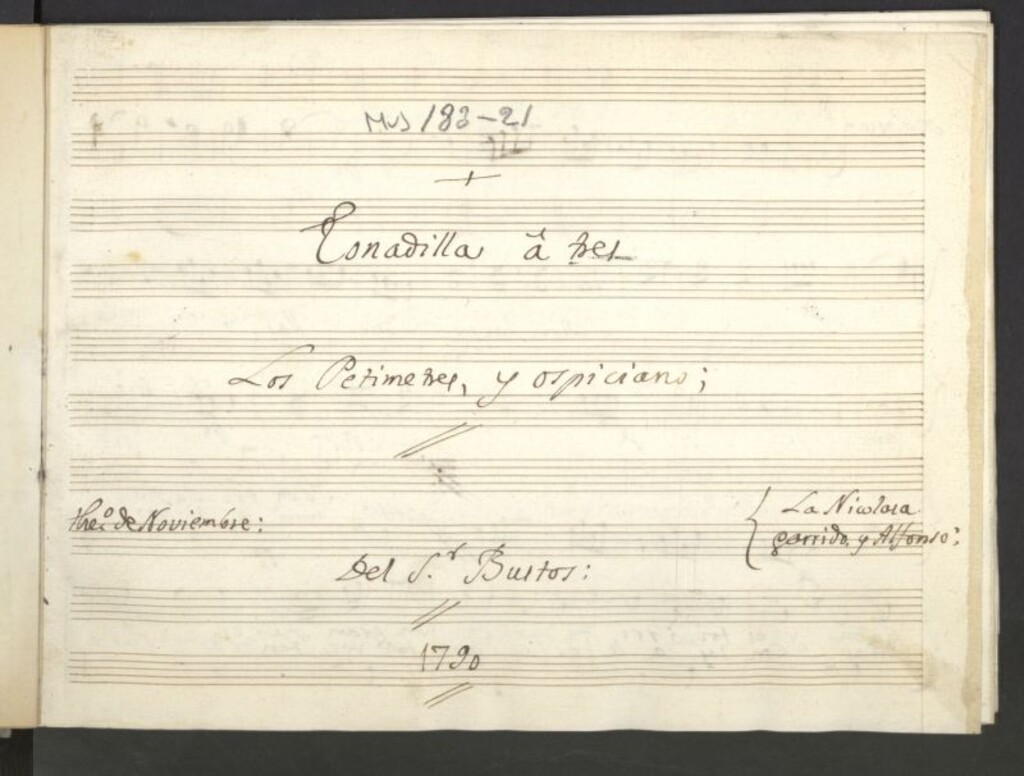 Mus 183-21
+
Tonadilla à tres
Los Petimetres, y ospiciano;
theº. de Noviembre:
La Nicolasa
garrido, y Alfonso;
Del S.r Bustos:
1790